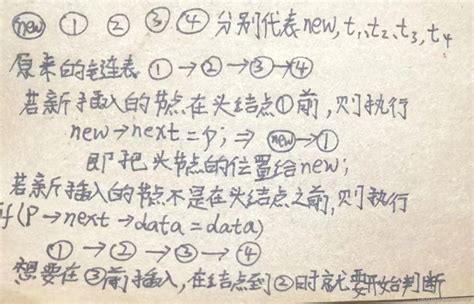 new ① ② ③ ④ 分别代表new, t₁、t₂、t₃、t₄
原来的链表 ①→②→③→④
若新插入的节点在头结点①前,则执行
new→next=p; ⇒ new→①
即把头节点的位置给new;
若新插入的节点不是在头结点之前,则执行
if(P→next→data=data)
①→②→③→④
想要在③前插入,在结点到②时就要开始判断